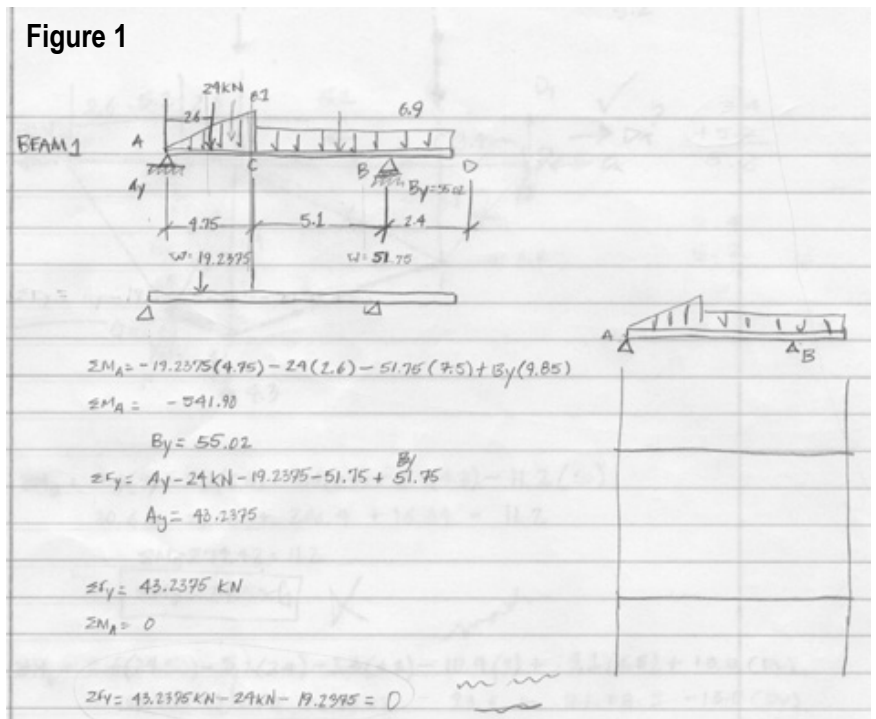 Figure 1
24KN 8.1
2.6 6.9
BEAM 1 A C B D
Ay By=55.02
4.75 5.1 2.4
W=19.2375 W=51.75
A B
ΣMA=-19.2375(4.75)-24(2.6)-51.75(7.5)+By(9.85)
ΣMA= -541.90
By=55.02
By
ΣFy= Ay-24KN-19.2375-51.75+51.75
Ay=43.2375
ΣFy= 43.2375 KN
ΣMA= 0
ΣFy= 43.2375KN-24KN-19.2375=0